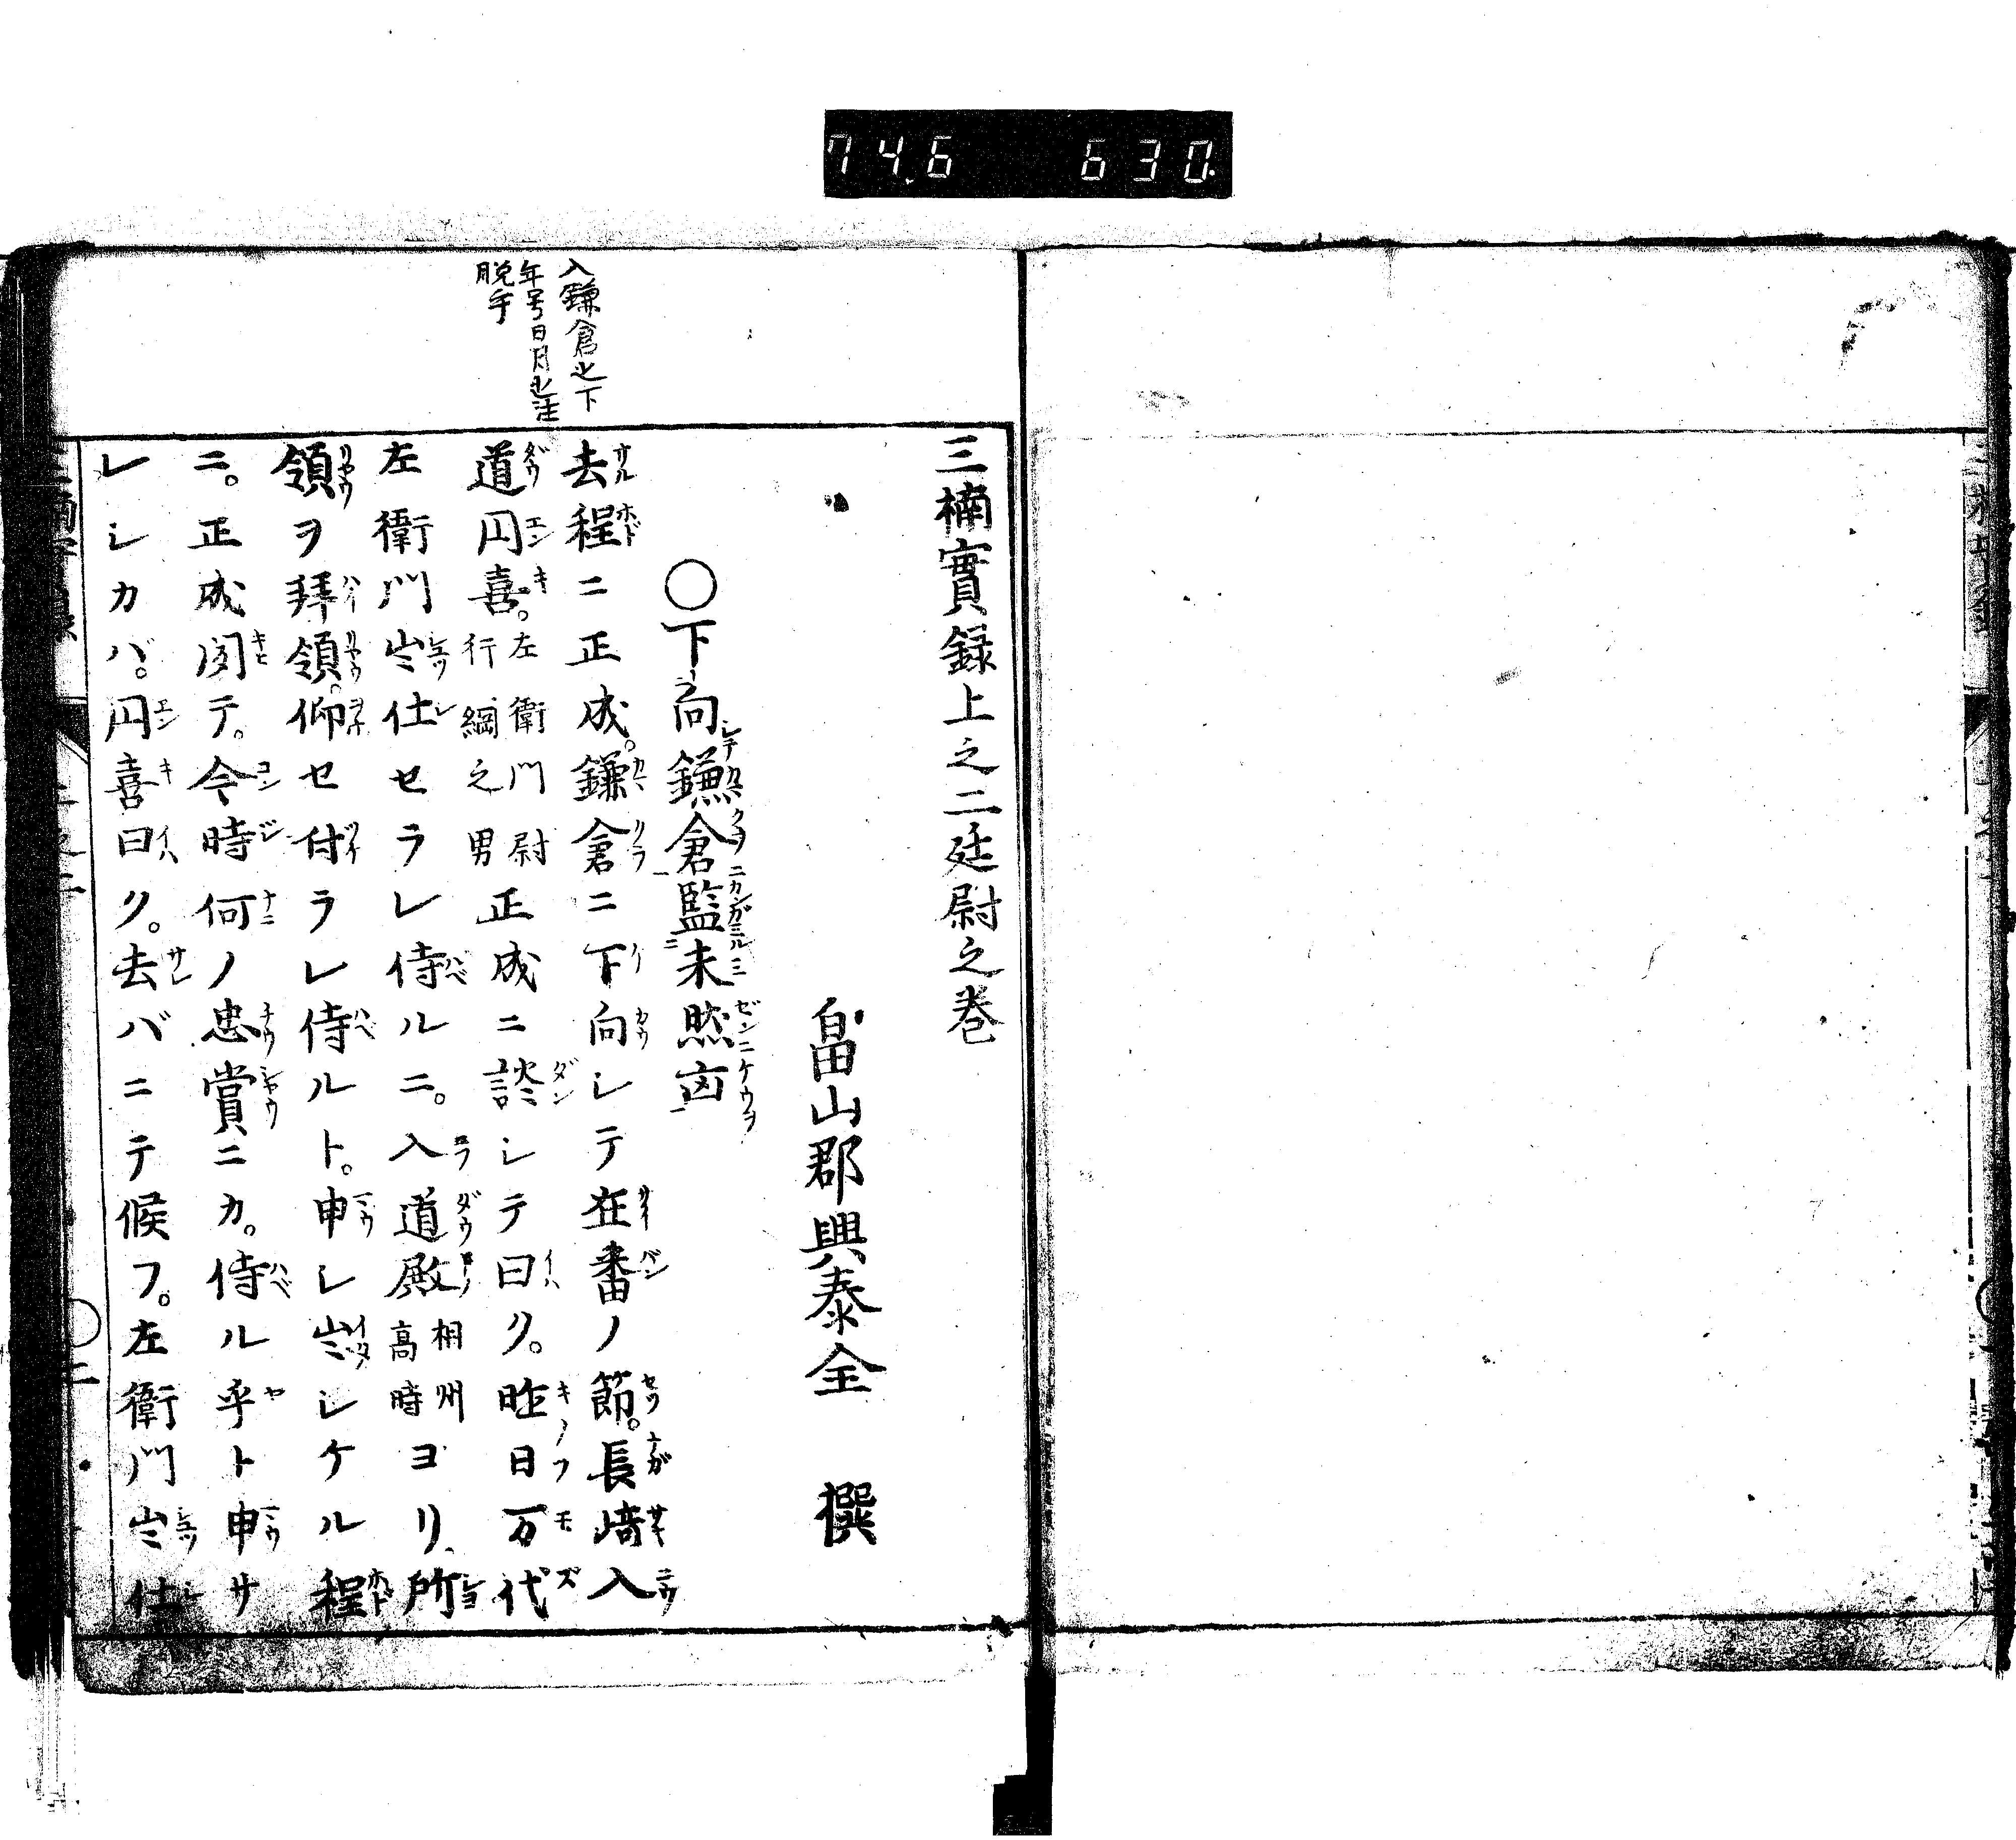 74.6 630
三楠實録上之二廷尉之巻
畠山郡興泰全 撰
〇下向鎌倉監未然凶
入鎌倉之下
年号日月之注
脱乎
去程ニ正成。鎌倉ニ下向シテ在番ノ節。長崎入
道円喜。左衛門尉行綱之男正成ニ談シテ曰ク。昨日万代
左衛門出仕セラレ侍ルニ。入道殿相州高時ヨリ所
領ヲ拝領。仰セ付ラレ侍ルト。申シ出シケル程
ニ。正成聞テ。今時何ノ忠賞ニカ。侍ル乎ト申サ
レシカバ。円喜曰ク。去バニテ候フ。左衛門出仕